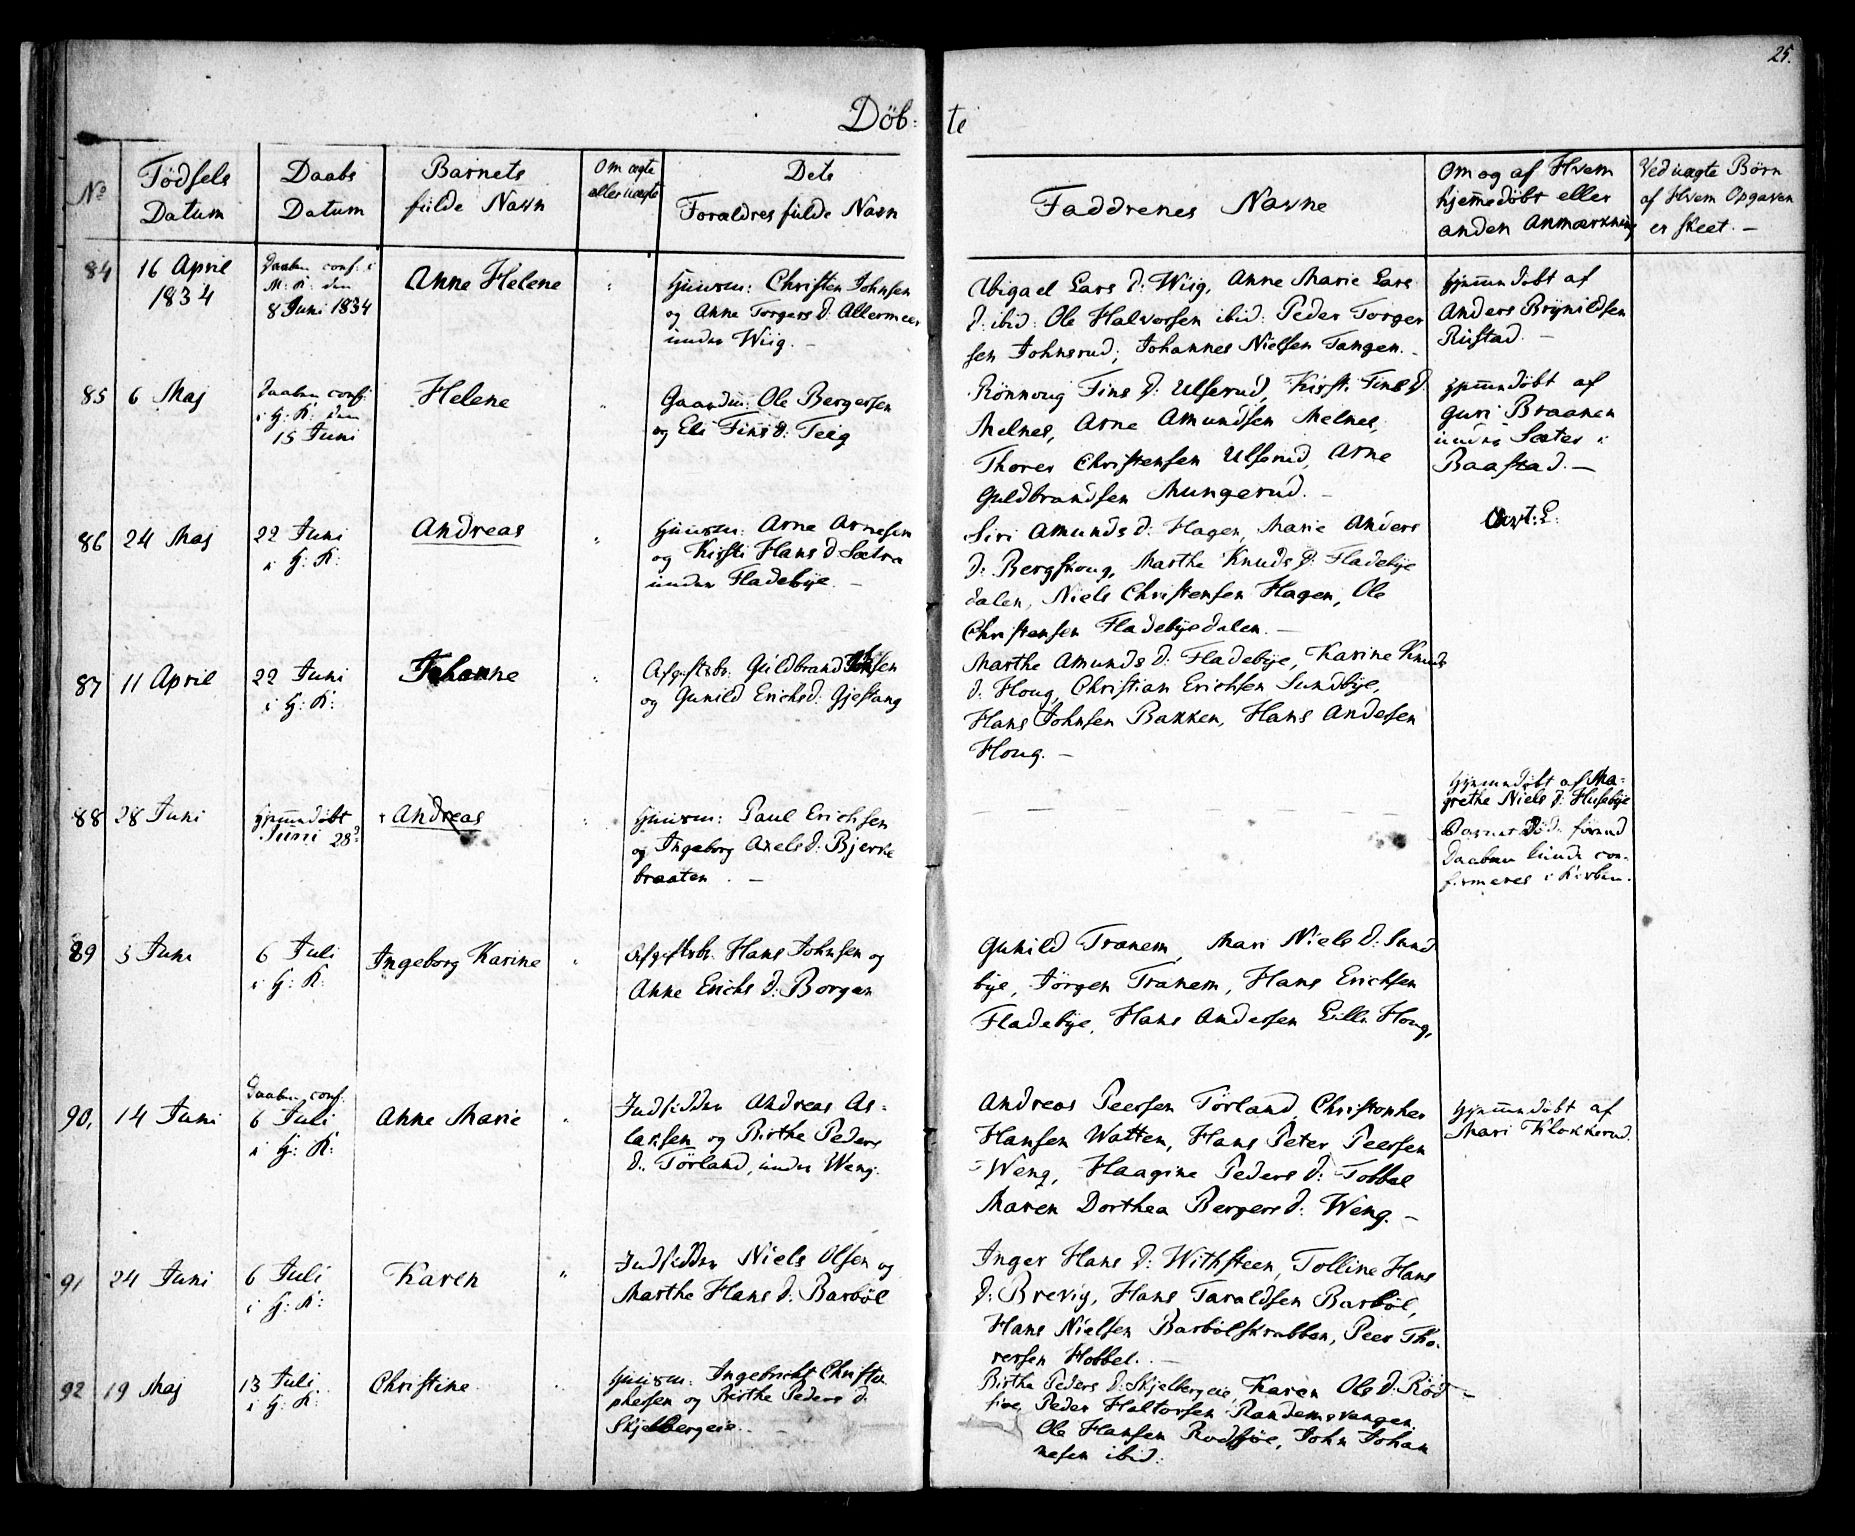 25.
Döb: te
No
Födsels Datum
Daabs Datum
Barnets fülde Navn
Om ægte eller uægte
Dets Forældres fülde Navn
Faddrenes Navne
Om og af Hvem hjemmedöbt eller anden Anmærkning
Ved uægte Börn af Hvem Opgaven er skeet. –
84
16 April
1834
Daaben conf. i
M: K: den
8 Juni 1834
Anne Helene
"
Huusm: Christen Johnsen
og Anne Torgers D: Allermeer
under Wiig. –
Abigael Lars D: Wiig, Anne Marie Lars
D: ibid: Ole Halvorsen ibid: Peder Torger
sen Johnsrud, Johannes Nielsen Tangen. –
hjemmedöbt af
Anders Brÿnildsen
Rustad. –
85
6 Maj
Daaben conf:
i H: K: den
15 Juni
Helene
"
Gaardm: Ole Bergersen
og Eli Fins D: Teig
Rönnoug Fins D: Ulserud, Kirsti Fins D:
Melnes, Arne Amundsen Melnes,
Thorer Christensen Ulserud, Arne
Guldbrandsen Mungerud. –
hjemmedöbt af
Guri Braanen
under Sæter i
Baastad. –
86
24 Maj
22 Juni
i H: K:
Andreas
"
Huusm: Arne Arnesen
og Kirsti Hans D: Sætra
under Fladebÿe. –
Siri Amunds D: Hagen, Marie Anders
D: Bergskoug, Marthe Knuds D: Fladebÿe
dalen, Niels Christensen Hagen, Ole
Christensen Fladebÿedalen. –
87
11 April
22 Juni
i H: K:
Johanne
"
Afgiftsbr: Guldbrand Johnsen
og Gunild Erichs D: Gjestang
Marthe Amunds D: Fladebÿe, Karine Knuds
D: Houg, Christian Erichsen Sundbÿe,
Hans Johnsen Bakken, Hans Andersen
Houg. –
88
28 Juni
hjemmedöbt
Juni 28
Andreas
"
Huusm: Paul Erichsen
og Ingeborg Axels D: Bjerke
braaten. –
– – – –
hjemmedöbt af Ma=
grethe Niels D: Husebÿe
Barnet Död forend
Daaben kunde con=
firmeres i Kirken.
89
5 Juni
6 Juli
i H: K:
Ingeborg Karine
"
Afgiftsbr: Hans Johnsen og
Anne Erichs D: Borgen
Gunild Tranem, Mari Niels D: Sund
bÿe, Jörgen Tranem, Hans Erichsen
Fladebÿe, Hans Andersen Lille Houg,
90,
14 Juni
Daaben conf:
6 Juli
i H: K:
Anne Marie
"
Indsidder Andreas As=
lassen og Birthe Peders
D: Törland, under Weng.
Andreas Peersen Törland, Christopher
Hansen Watten, Hans Peter Peersen
Weng, Haagine Peders D: Tobbel
Maren Dorthea Bergers D: Weng. –
hjemmedöbt af
Mari Klokkerud.
91
24 Juni
6 Juli
i H: K:
Karen
"
Indsidder Niels Olsen og
Marthe Hans D: Barböl
Inger Hans D: Withsteen, Tolline Hans
D: Brevig, Hans Taraldsen Barböl,
Hans Nielsen Barbölskrubben, Peer Tho=
rersen Hobbel. –
92
19 Maj
13 Juli
i H: K:
Christine
"
Huusm: Ingebricht Christo
phersen og Birthe Peders D:
Skjelbergeie.
Birthe Peders D: Skjelbergeie, Karen Ols D: Röd –
söe, Peder Halvorsen Randemsvangen,
Ole Hansen Rodsöe, John Johan
nesen ibid: